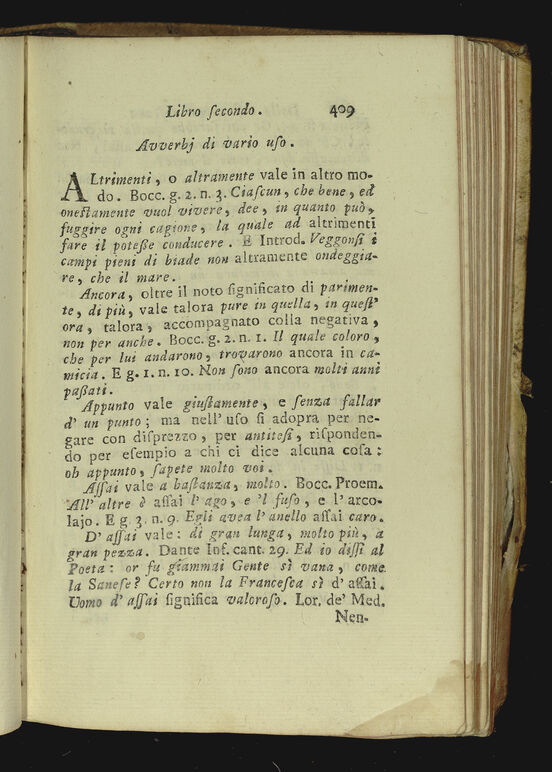 Libro ſecondo. 409
Avverbj di vario uſo.
ALtrimenti, o altramente vale in altro mo-
do. Bocc. g. 2. n. 3. Ciaſcun, che bene, ed
oneſtamente vuol vivere, dee, in quanto può,
fuggire ogni cagione, la quale ad altrimenti
fare il poteſſe conducere. E Introd. Veggonſi i
campi pieni di biade non altramente ondeggia-
re, che il mare.
Ancora, oltre il noto ſignificato di parimen-
te, di più, vale talora pure in quella, in queſt'
ora, talora, accompagnato colla negativa,
non per anche. Bocc. g. 2. n. 1. Il quale coloro,
che per lui andarono, trovarono ancora in ca-
micia. E g. 1. n. 10. Non ſono ancora molti anni
paſſati.
Appunto vale giuſtamente, e ſenza fallar
d' un punto; ma nell' uſo ſi adopra per ne-
gare con diſprezzo, per antiteſi, riſponden-
do per eſempio a chi ci dice alcuna coſa:
oh appunto, ſapete molto voi.
Aſſai vale a baſtanza, molto. Bocc. Proem.
All' altre è aſſai l' ago, e 'l fuſo, e l' arco-
lajo. E g. 3. n. 9. Egli avea l' anello aſſai caro.
D' aſſai vale: di gran lunga, molto più, a
gran pezza. Dante Inf. cant. 29. Ed io diſſi al
Poeta: or fu giammai Gente sì vana, come
la Saneſe? Certo non la Franceſca sì d' aſſai.
Uomo d' aſſai ſignifica valoroſo. Lor. de' Med.
Nen-